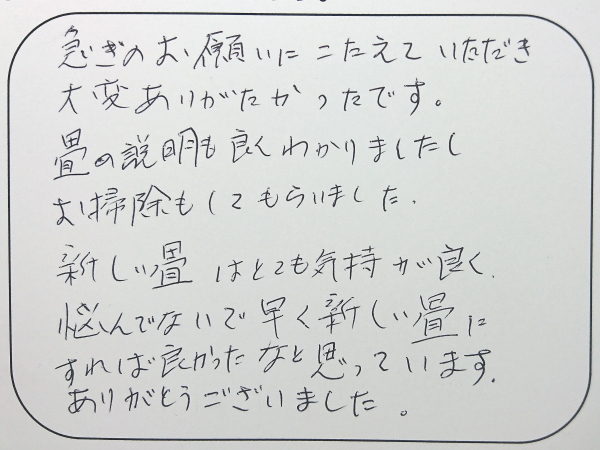 急ぎのお願いにこたえていただき
大変ありがたかったです。
畳の説明も良くわかりましたし
お掃除もしてもらいました.
新しい畳はとても気持が良く.
悩んでないで早く新しい畳に
すれば良かったなと思っています.
ありがとうございました。